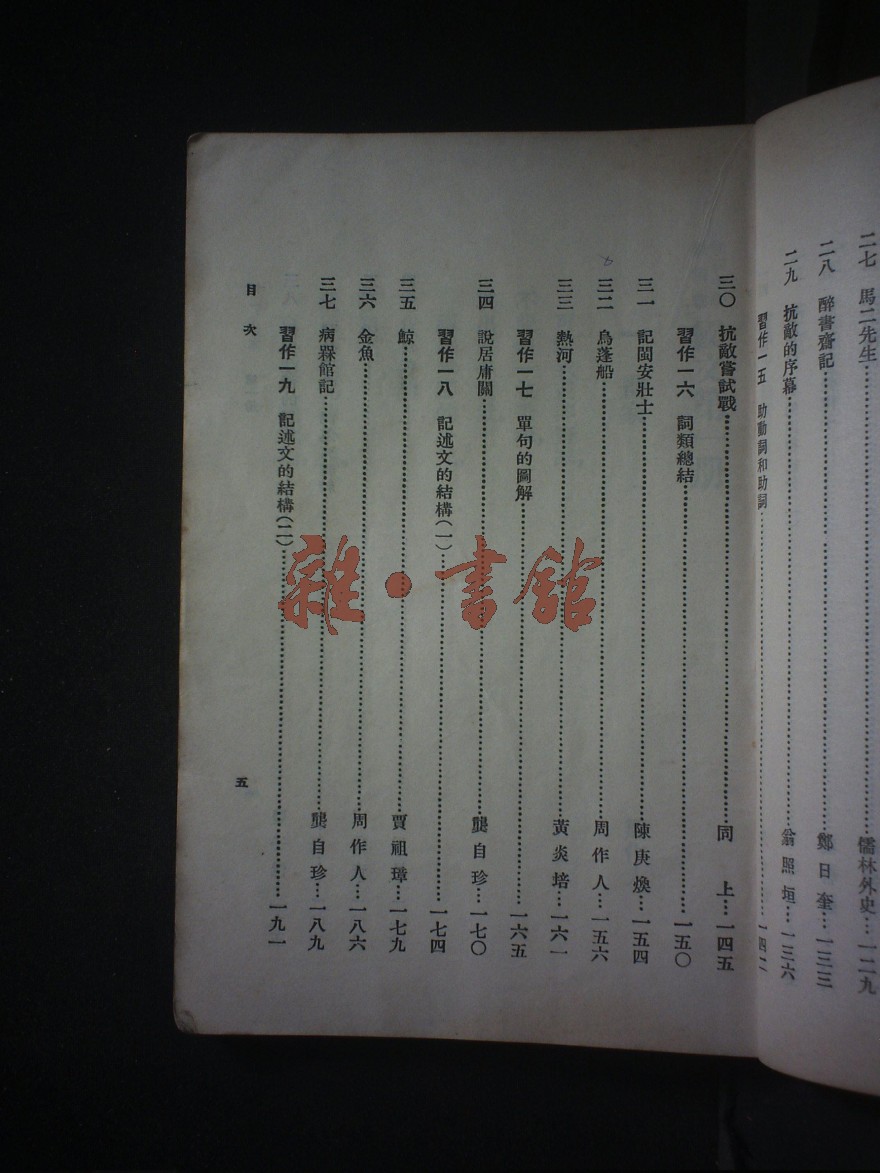 二七　馬二先生……儒林外史…一二九
二八　醉書齋記……鄭日奎…一三三
二九　抗敵的序幕……翁照垣…一三六
習作一五　助動詞和助詞……一四二
三〇　抗敵嘗試戰……同上…一四五
習作一六　詞類總結……一五〇
三一　記閩安壯士……陳庚煥…一五四
三二　烏蓬船……周作人…一五六
三三　熱河……黃炎培…一六一
習作一七　單句的圖解……一六五
三四　說居庸關……龔自珍…一七〇
習作一八　記述文的結構(一)……一七四
三五　鯨……賈祖璋…一七九
三六　金魚……周作人…一八六
三七　病槑館記……龔自珍…一八九
習作一九　記述文的結構(二)……一九一
目次
五
雜·書館